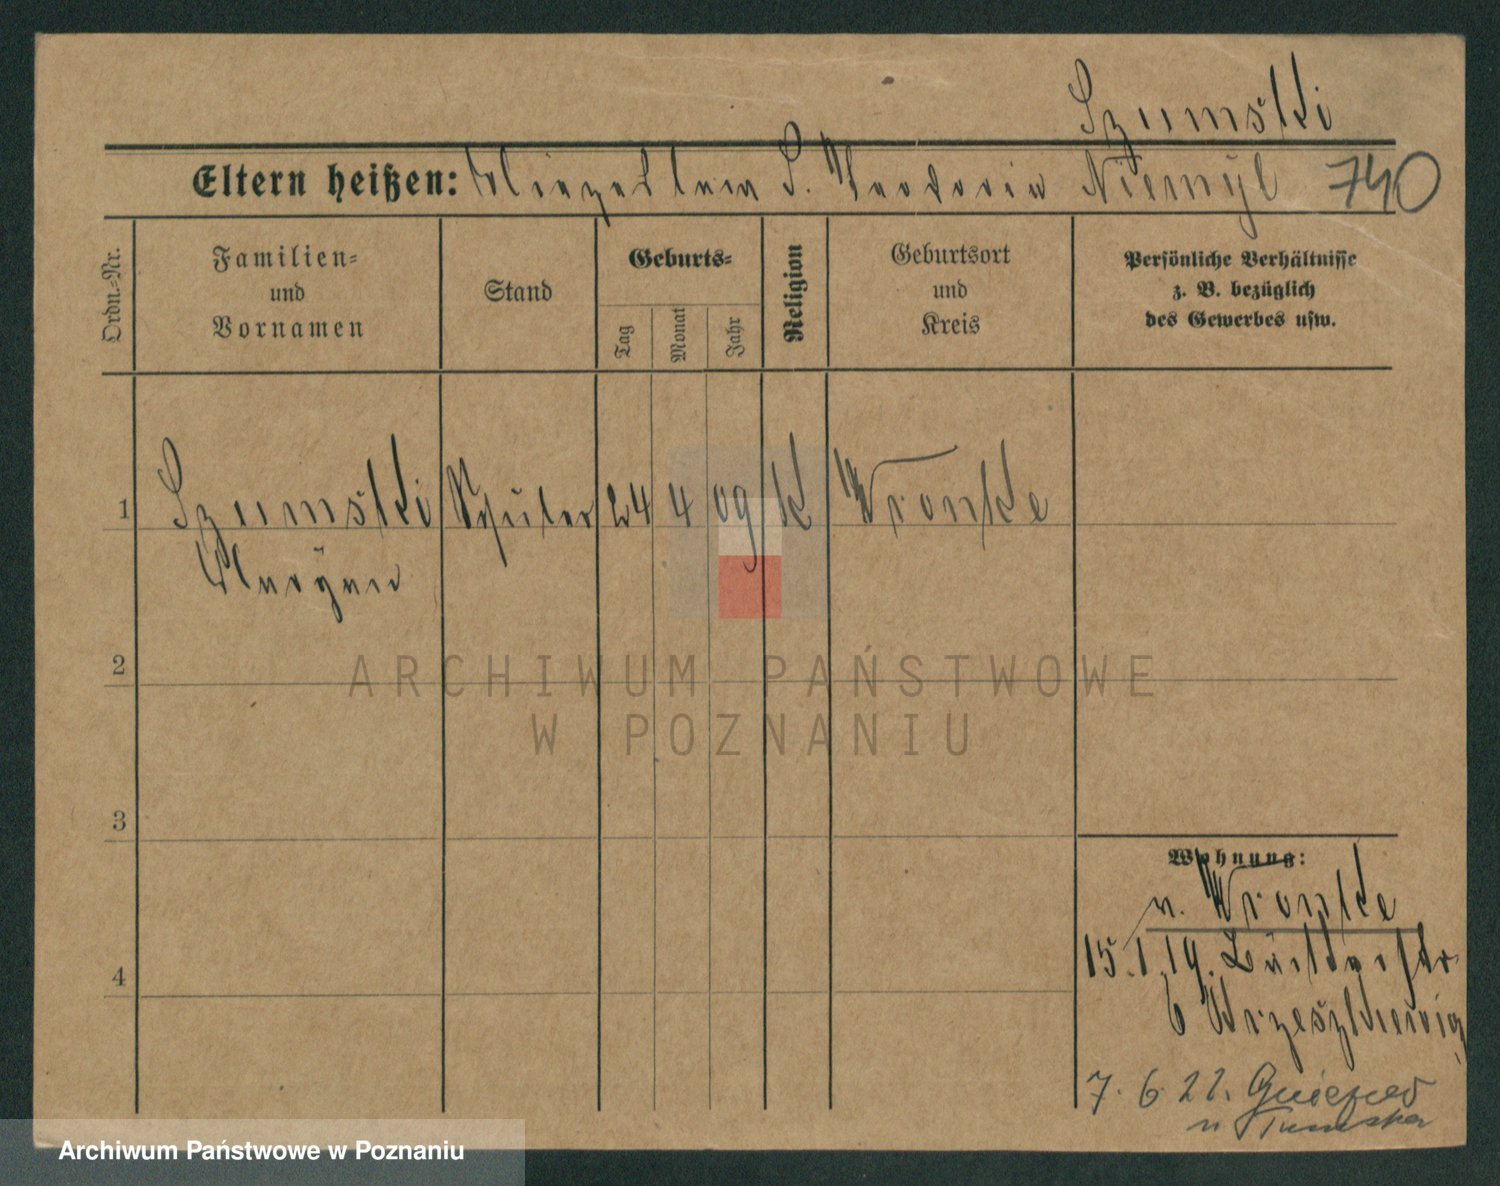 Szumski
Eltern heißen: S. Teodozia Niemÿl 740
Ordn.-Nr.
Familien-
und
Vornamen
Stand
Geburts-
Tag
Monat
Jahr
Religion
Geburtsort
und
Kreis
Persönliche Verhältnisse
z. B. bezüglich
des Gewerbes usw.
1 Szumski Schüler 24 4 09 K Wronke
Maryan
2
ARCHIWUM PAŃSTWOWE
W POZNANIU
3
Wohnung:
n. Wronke
4
15.1.19.
6
7.6.22.
n
Archiwum Państwowe w Poznaniu